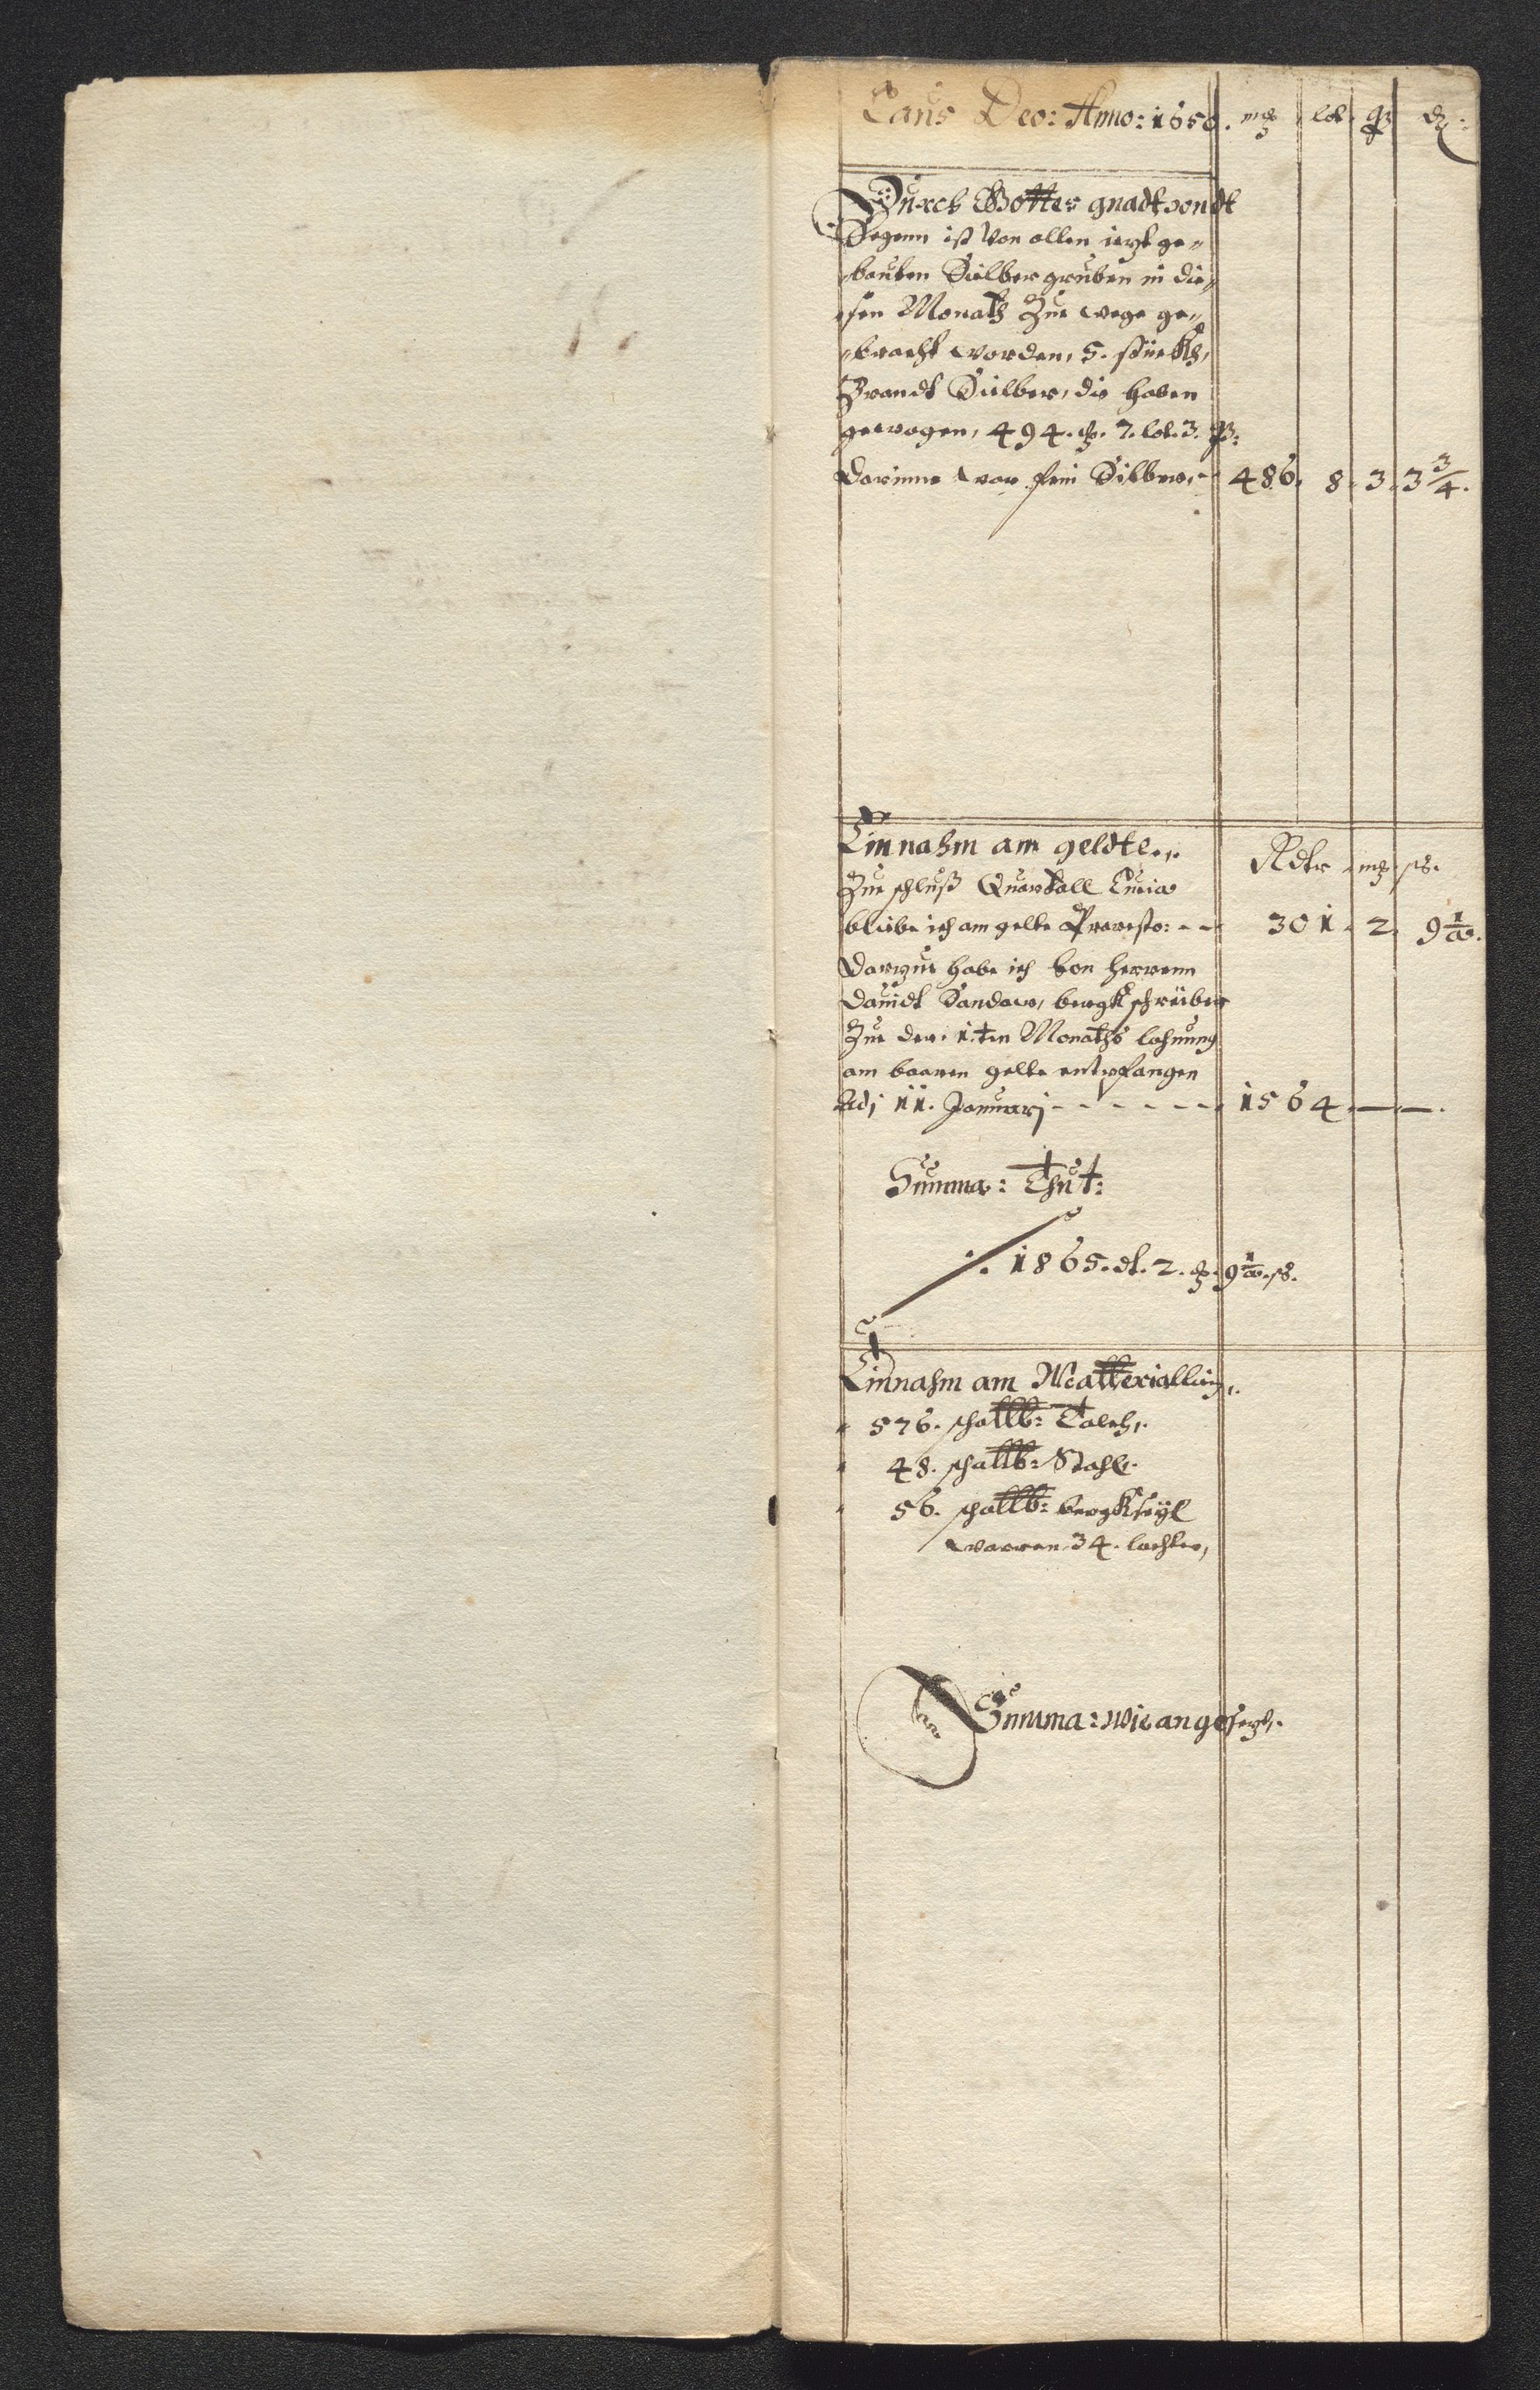 Laus Deo: Anno: 1650. mk lot. q dℓ:
Durch Gottes gnadt vondt
Segenn ist von allen ietzt ge„
„bauten Sielber gruben in die„
„sen Monath Zue wege ge„
„bracht worden, 5. stückh,
Brandt Sielber, die haben
gewogen, 494. mk. 7. lot. 3. q:
Darinne war fein Silber, - 486. 8. 3. 3 3/4.
Einnahm am geldte.,. Rdtr mk ß.
Zue schluß Quartall Lucia
bliebe ich am gelte Praresto: - - 301. 2. 9 1/2.
Darzue habe ich von herrenn
Davidt Sandaw, bergkschreiber
Zue der. 1.ten Monaths lohnung
am baaren gelte entpfangen
Adj 11. Januarj - - - - - - 1564. — —.
Summa: Thut:
1865. dl. 2. mk. 9 1/2. ß.
Einnahm am Matteriallien,.
576. schallb: Talch,.
48. schallb: Stahl.
56. schallb: bergkseyl
warren 34. lachter,
Summa: wie angesezt,.